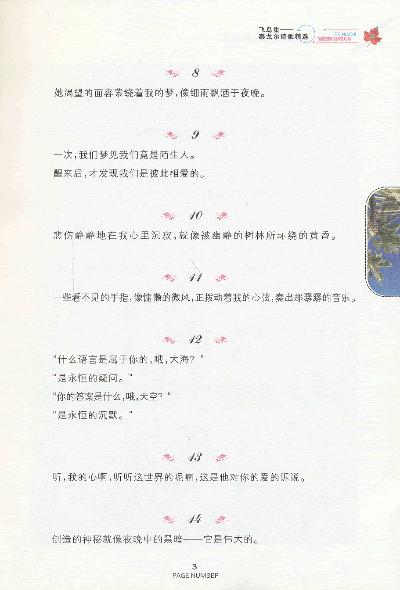 飞鸟集——
泰戈尔诗歌精选
8
她渴望的面容萦绕着我的梦,像细雨飘洒于夜晚。
9
一次,我们梦见我们竟是陌生人。
醒来后,才发现我们是彼此相爱的。
10
悲伤静静地在我心里沉寂,就像被幽静的树林所环绕的黄昏。
11
一些看不见的手指,像慵懒的微风,正拨动着我的心弦,奏出那潺潺的音乐。
12
“什么语言是属于你的,哦,大海?”
“是永恒的疑问。”
“你的答案是什么,哦,天空?”
“是永恒的沉默。”
13
听,我的心啊,听听这世界的呢喃,这是他对你的爱的诉说。
14
创造的神秘就像夜晚中的黑暗——它是伟大的。
3
PAGE NUMBER